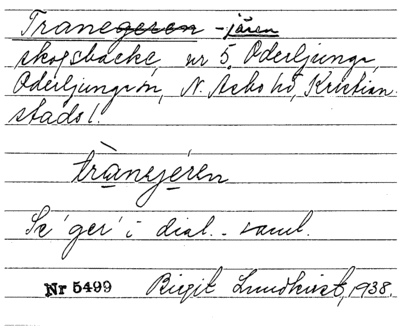 Tranegeren -jären
skogsbacke nr 5, Oderljunga,
Oderljunga sn, N. Åsbo hd, Kristian-
stads l.
trànejéren
Se 'ger' i dial.-saml.
Nr 5499 Birgit Lundkvist, 1938.